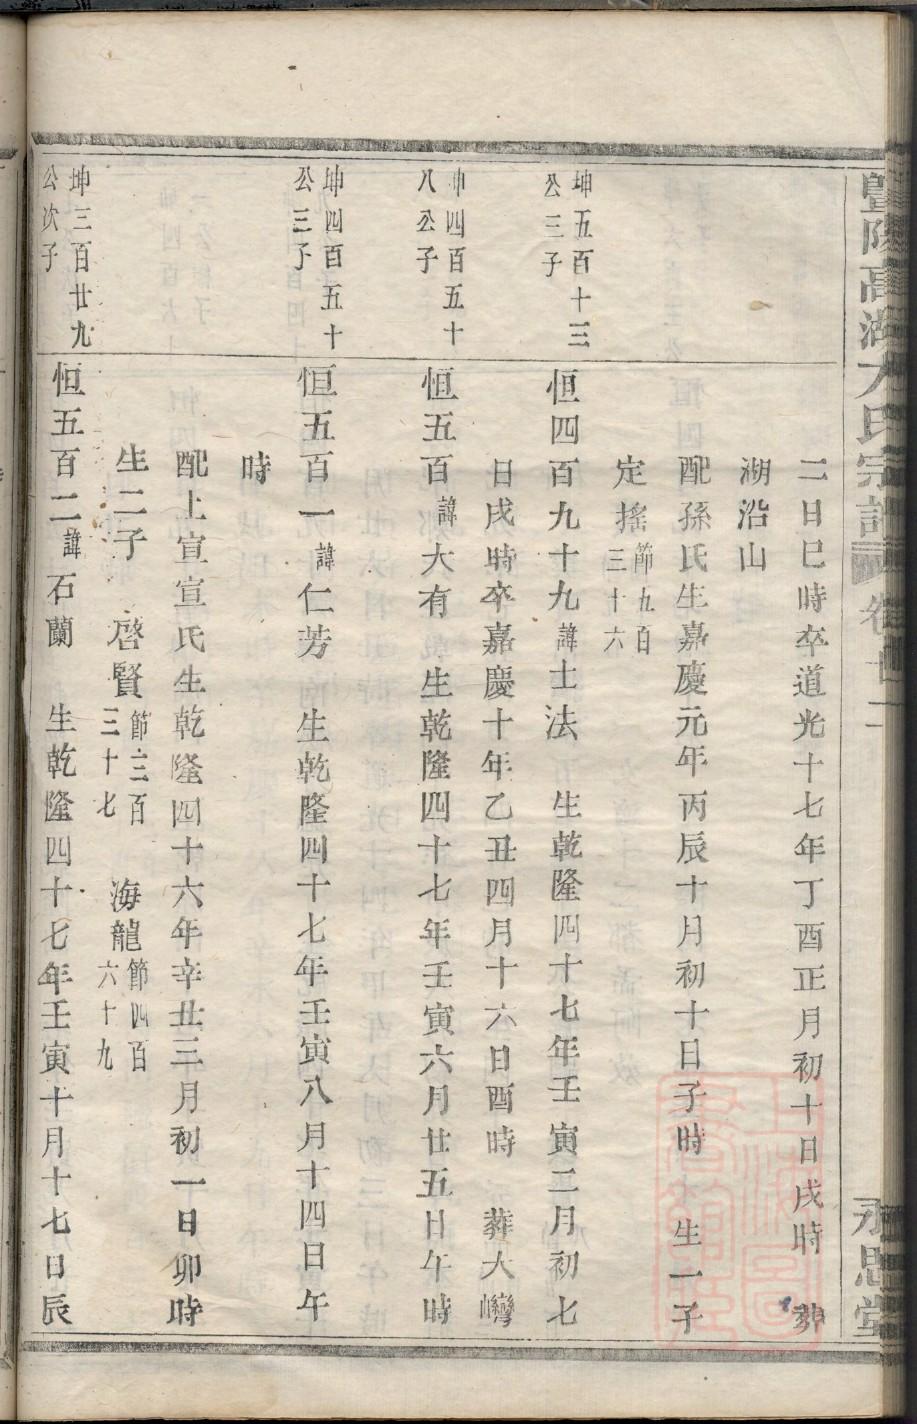 暨陽高湖方氏宗譜 卷廿二 永思堂
二日巳時卒道光十七年丁酉正月初十日戌時 葬
湖沿山
配孫氏生嘉慶元年丙辰十月初十日子時 生一子
定搖節九百三十六
坤五百十三公三子
恒四百九十九諱士法 生乾隆四十七年壬寅二月初七
日戌時卒嘉慶十年乙丑四月十六日酉時 葬大
坤四百五十八公子
恒五百諱大有 生乾隆四十七年壬寅六月廿五日午時
坤四百五十公三子
恒五百一諱仁芳 生乾隆四十七年壬寅八月十四日午
時
配上宣宣氏生乾隆四十六年辛丑三月初一日卯時
生二子 啓賢節三百三十七 海龍節四百六十九
坤三百廿九公次子
恒五百二諱石蘭 生乾隆四十七年壬寅十月十七日辰